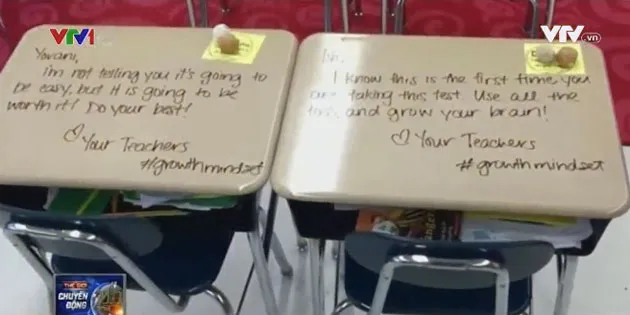 VTV1
VTV.vn
Yovani,
i'm not telling you it's going to
be easy, but it is going to be
worth it! Do your best!
♡ Your Teachers
#growthmindset
I know this is the first time you
are taking this test. Use all the
and grow your brain!
♡ Your Teachers
#growthmindset
THẾ GIỚI
CHUYỂN
ĐỘNG